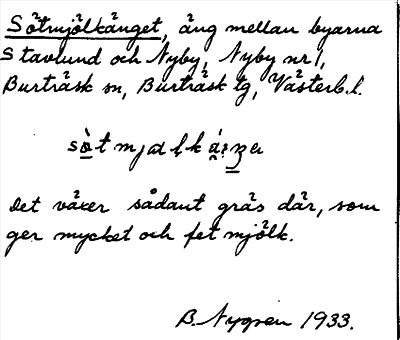 Sötmjölkänget, äng mellan byarna
Stavlund och Nyby, Nyby nr 1,
Burträsk sn, Burträsk tg, Västerb.l.
Det växer sådant gräs där, som
ger mycket och fet mjölk.
B. Nygren 1933.